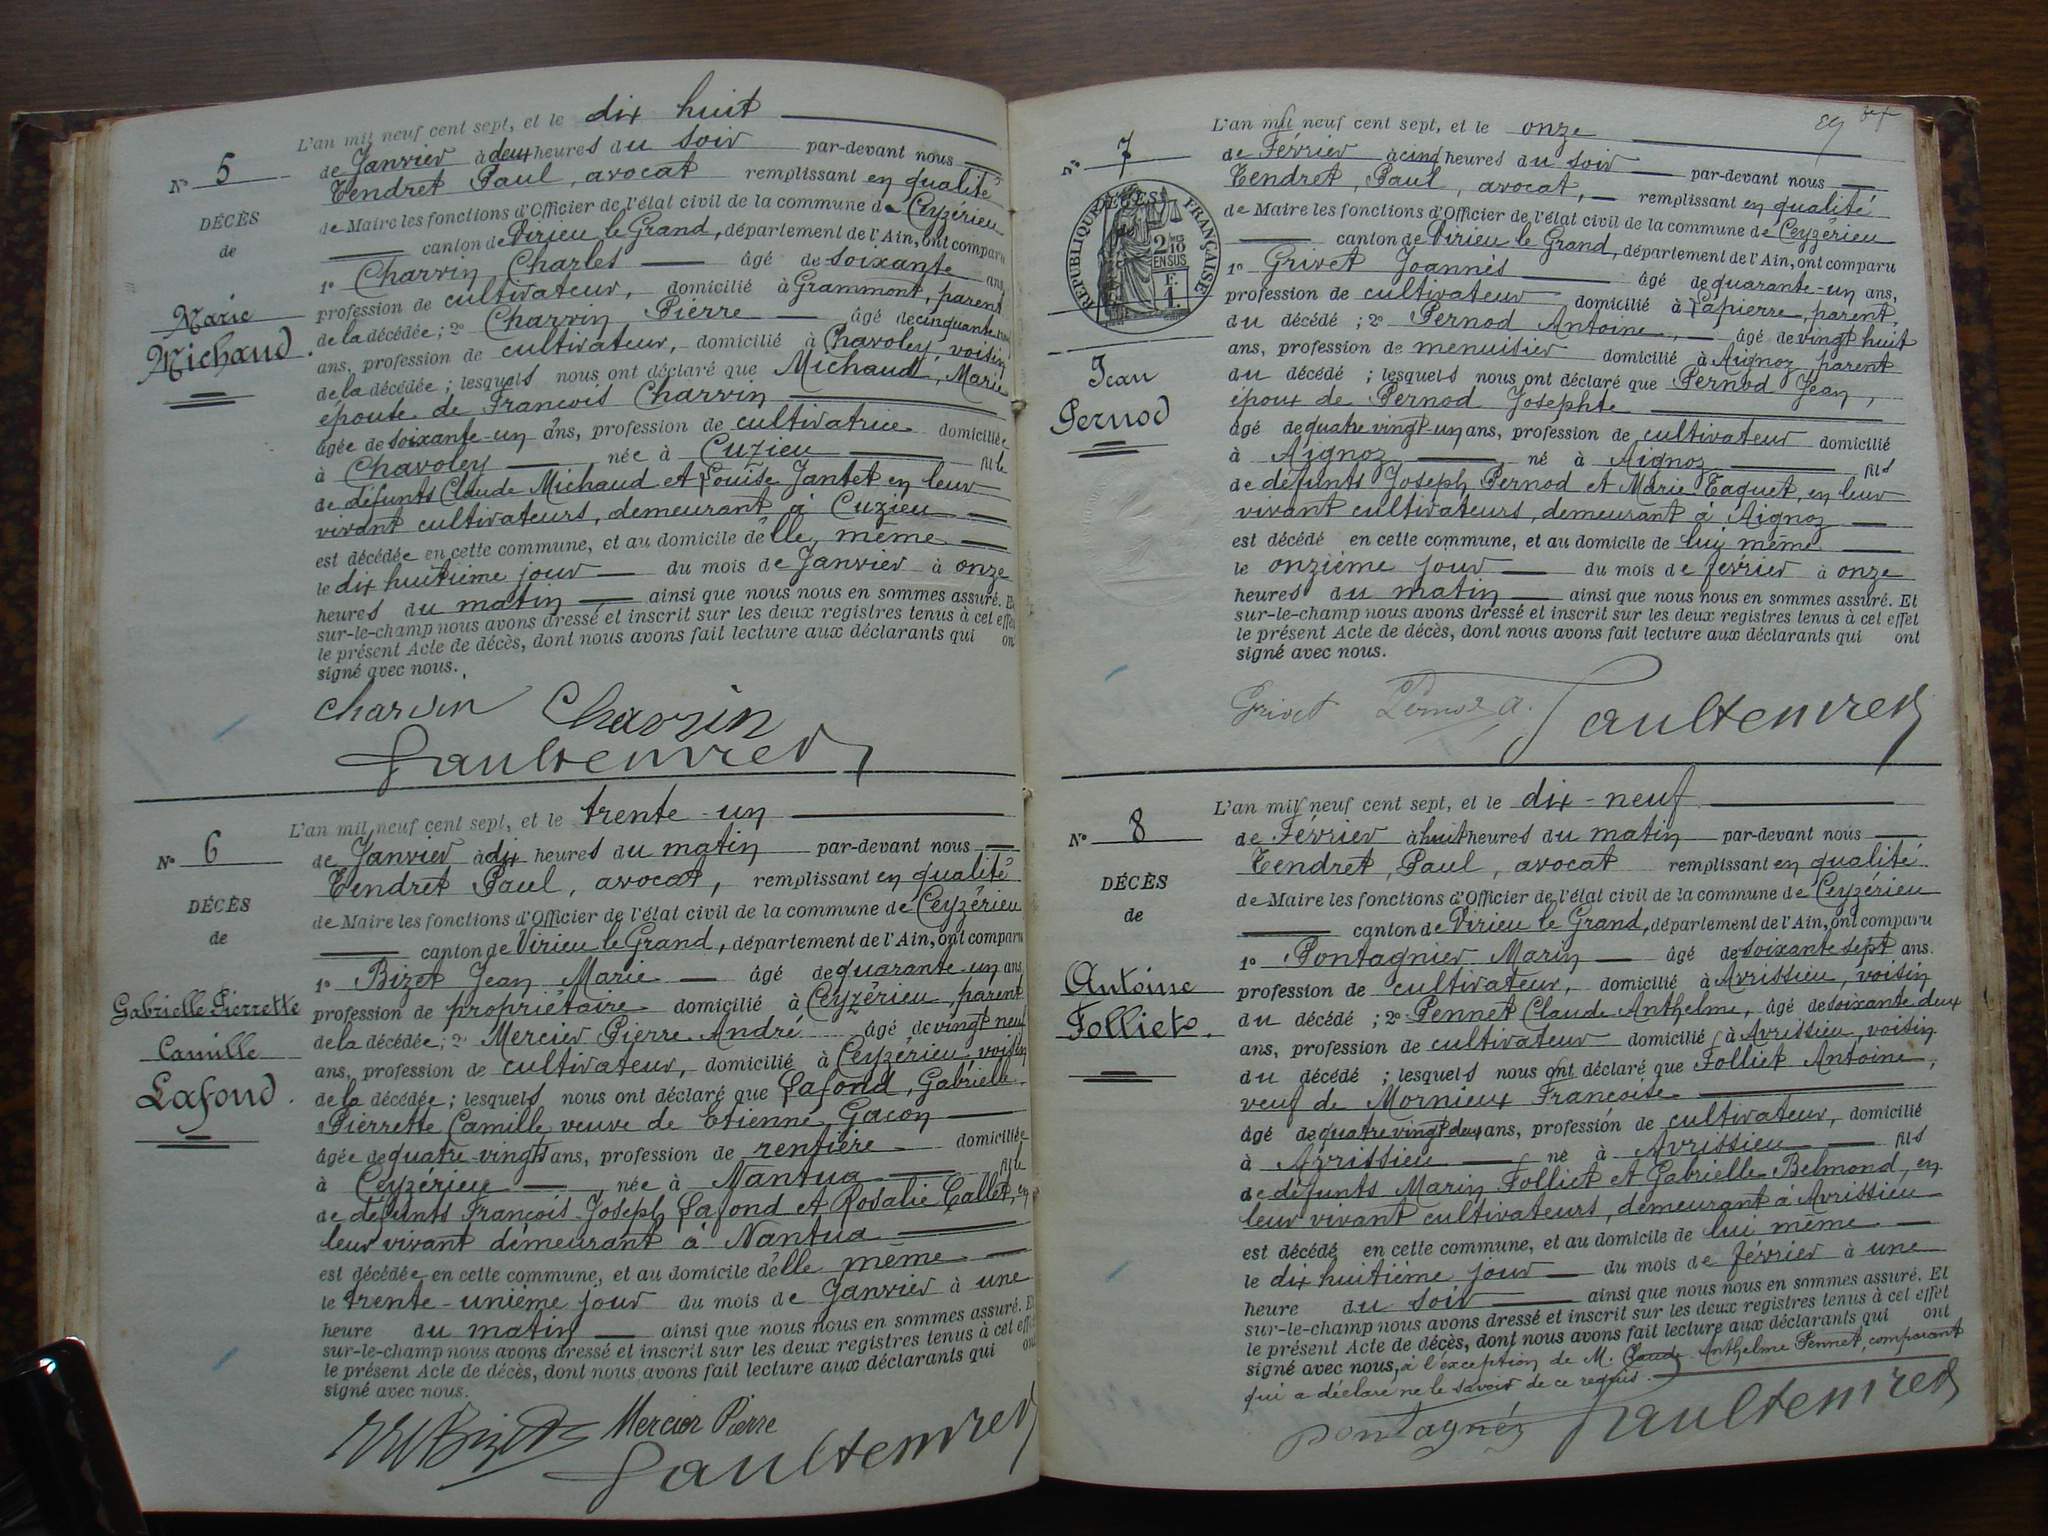 L'an mil neuf cent sept, et le dix huit
N° 5
de Janvier à deux heures du soir par-devant nous
Tendret Paul, avocat remplissant en qualité
DÉCÈS
de Maire les fonctions d'Officier de l'état civil de la commune de Ceyzérieu
de
canton de Virieu le Grand, département de l'Ain, ont comparu
1° Charvin Charles âgé de soixante ans,
Marie
profession de cultivateur, domicilié à Grammont, parent
Michaud.
de la décédée; 2° Charvin Pierre âgé de cinquante
ans, profession de cultivateur, domicilié à Chavoley, voisin
de la décédée; lesquels nous ont déclaré que Michaud, Marie
épouse de François Charvin
âgée de soixante-un ans, profession de cultivatrice domiciliée
à Chavoley née à Cuzieu fille
de défunts Claude Michaud et Louise Jantet en leur
vivant cultivateurs, demeurant à Cuzieu
est décédée en cette commune, et au domicile d'elle même
le dix huitième jour du mois de Janvier à onze
heures du matin ainsi que nous nous en sommes assuré. Et
sur-le-champ nous avons dressé et inscrit sur les deux registres tenus à cet effet
le présent Acte de décès, dont nous avons fait lecture aux déclarants qui ont
signé avec nous.
Charvin Charvin
Paul Tendret
L'an mil neuf cent sept, et le trente-un
N° 6
de Janvier à dix heures du matin par-devant nous
Tendret Paul, avocat, remplissant en qualité
DÉCÈS
de Maire les fonctions d'Officier de l'état civil de la commune de Ceyzérieu
de
canton de Virieu le Grand, département de l'Ain, ont comparu
1° Bizet Jean Marie âgé de quarante-un ans
Gabrielle Pierrette
profession de propriétaire domicilié à Ceyzérieu, parent
Camille
de la décédée; 2° Mercier Pierre André âgé de vingt neuf
Lafond.
ans, profession de cultivateur, domicilié à Ceyzérieu, voisin
de la décédée; lesquels nous ont déclaré que Lafond, Gabrielle
Pierrette Camille veuve de Etienne Gacon
âgée de quatre-vingts ans, profession de rentière domiciliée
à Ceyzérieu née à Nantua fille
de défunts François Joseph Lafond et Rosalie Callet, en
leur vivant demeurant à Nantua
est décédée en cette commune, et au domicile d'elle même
le trente-unième jour du mois de Janvier à une
heure du matin ainsi que nous nous en sommes assuré. Et
sur-le-champ nous avons dressé et inscrit sur les deux registres tenus à cet effet
le présent Acte de décès, dont nous avons fait lecture aux déclarants qui ont
signé avec nous.
Bizet Mercier Pierre
Paul Tendret
89
L'an mil neuf cent sept, et le onze
N° 7
de Février à cinq heures du soir par-devant nous
Tendret, Paul, avocat, remplissant en qualité
DÉCÈS
RÉPUBLIQUE FRANÇAISE
2 10
EN SUS
F.
1.
de Maire les fonctions d'Officier de l'état civil de la commune de Ceyzérieu
canton de Virieu le Grand, département de l'Ain, ont comparu
1° Grivet Joannès âgé de quarante-un ans,
profession de cultivateur domicilié à Lapierre, parent,
du décédé; 2° Pernod Antoine, âgé de vingt huit
ans, profession de menuisier domicilié à Aignoz, parent
Jean
Pernod
du décédé; lesquels nous ont déclaré que Pernod Jean,
époux de Pernod Josephte
âgé de quatre vingt un ans, profession de cultivateur domicilié
à Aignoz né à Aignoz fils
de défunts Joseph Pernod et Marie Taquet, en leur
vivant cultivateurs, demeurant à Aignoz
est décédé en cette commune, et au domicile de lui même
le onzième jour du mois de février à onze
heures du matin ainsi que nous nous en sommes assuré. Et
sur-le-champ nous avons dressé et inscrit sur les deux registres tenus à cet effet
le présent Acte de décès, dont nous avons fait lecture aux déclarants qui ont
signé avec nous.
Grivet Pernod a. Paul Tendret
L'an mil neuf cent sept, et le dix-neuf
N° 8
de Février à huit heures du matin par-devant nous
Tendret, Paul, avocat remplissant en qualité
DÉCÈS
de Maire les fonctions d'Officier de l'état civil de la commune de Ceyzérieu
de
canton de Virieu le Grand, département de l'Ain, ont comparu
1° Pontagnier Marin âgé de soixante sept ans.
Antoine
profession de cultivateur, domicilié à Avrissieu, voisin
Folliet.
du décédé; 2° Pennet Claude Anthelme, âgé de soixante deux
ans, profession de cultivateur domicilié à Avrissieu, voisin
du décédé; lesquels nous ont déclaré que Folliet Antoine,
veuf de Mornieux Françoise
âgé de quatre vingt deux ans, profession de cultivateur, domicilié
à Avrissieu né à Avrissieu fils
de défunts Marin Folliet et Gabrielle Belmond, en
leur vivant cultivateurs, demeurant à Avrissieu
est décédé en cette commune, et au domicile de lui même
le dix huitième jour du mois de février à une
heure du soir ainsi que nous nous en sommes assuré. Et
sur-le-champ nous avons dressé et inscrit sur les deux registres tenus à cet effet
le présent Acte de décès, dont nous avons fait lecture aux déclarants qui ont
signé avec nous, à l'exception de M. Claude Anthelme Pennet, comparant
qui a déclaré ne le savoir de ce requis.
pontagnéz Paul Tendret